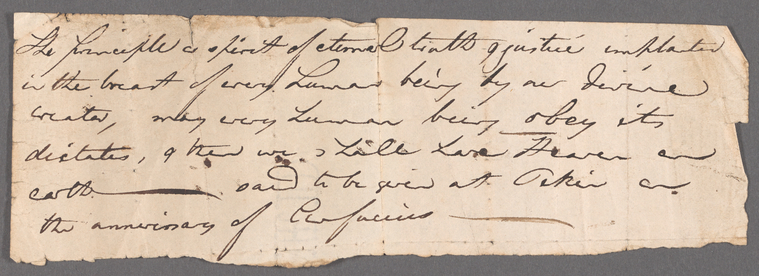 The principle & spirit of eternal truth & justice implanted
in the breast of every human being by our divine
creator, may every human being obey its
dictates, & then we shall have Heaven on
earth ——— said to be given at Pekin on
the anniversary of Confucius ———